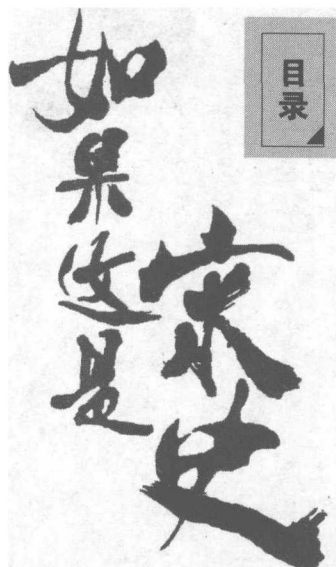 如果这是
宋史
目录